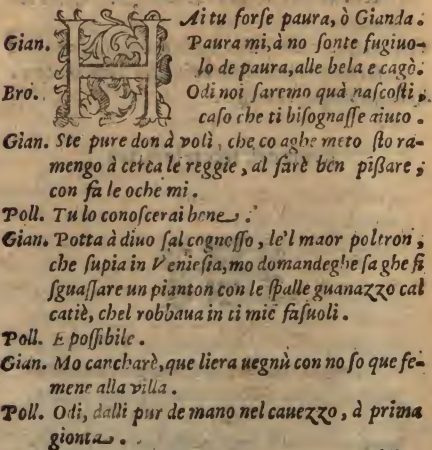 HAi tu forse paura, ò Gianda.
Gian. Paura mi, à no sonte fugiuo-
lo de paura, alle bela e cagò.
Bro. Odi noi saremo quà nascosti,
caso che ti bisognasse aiuto.
Gian. Ste pure don à voli, che, co aghe meto sto ra-
mengo à cerca le reggie, al farè ben pißare,
con fa le oche mi.
Poll. Tu lo conoscerai bene.
Gian. Potta à diuo sal cognosso, le'l maor poltron,
che supia in Veniesia, mo domandeghe sa ghe fi
sguassare un pianton con le spalle guanazzo cal
catiè, chel robbaua in ti miè fasuoli.
Poll. E possibile.
Gian. Mo cancharè, que liera uegnù con no so que fe-
mene alla villa.
Poll. Odi, dalli pur de mano nel cauezzo, à prima
gionta.